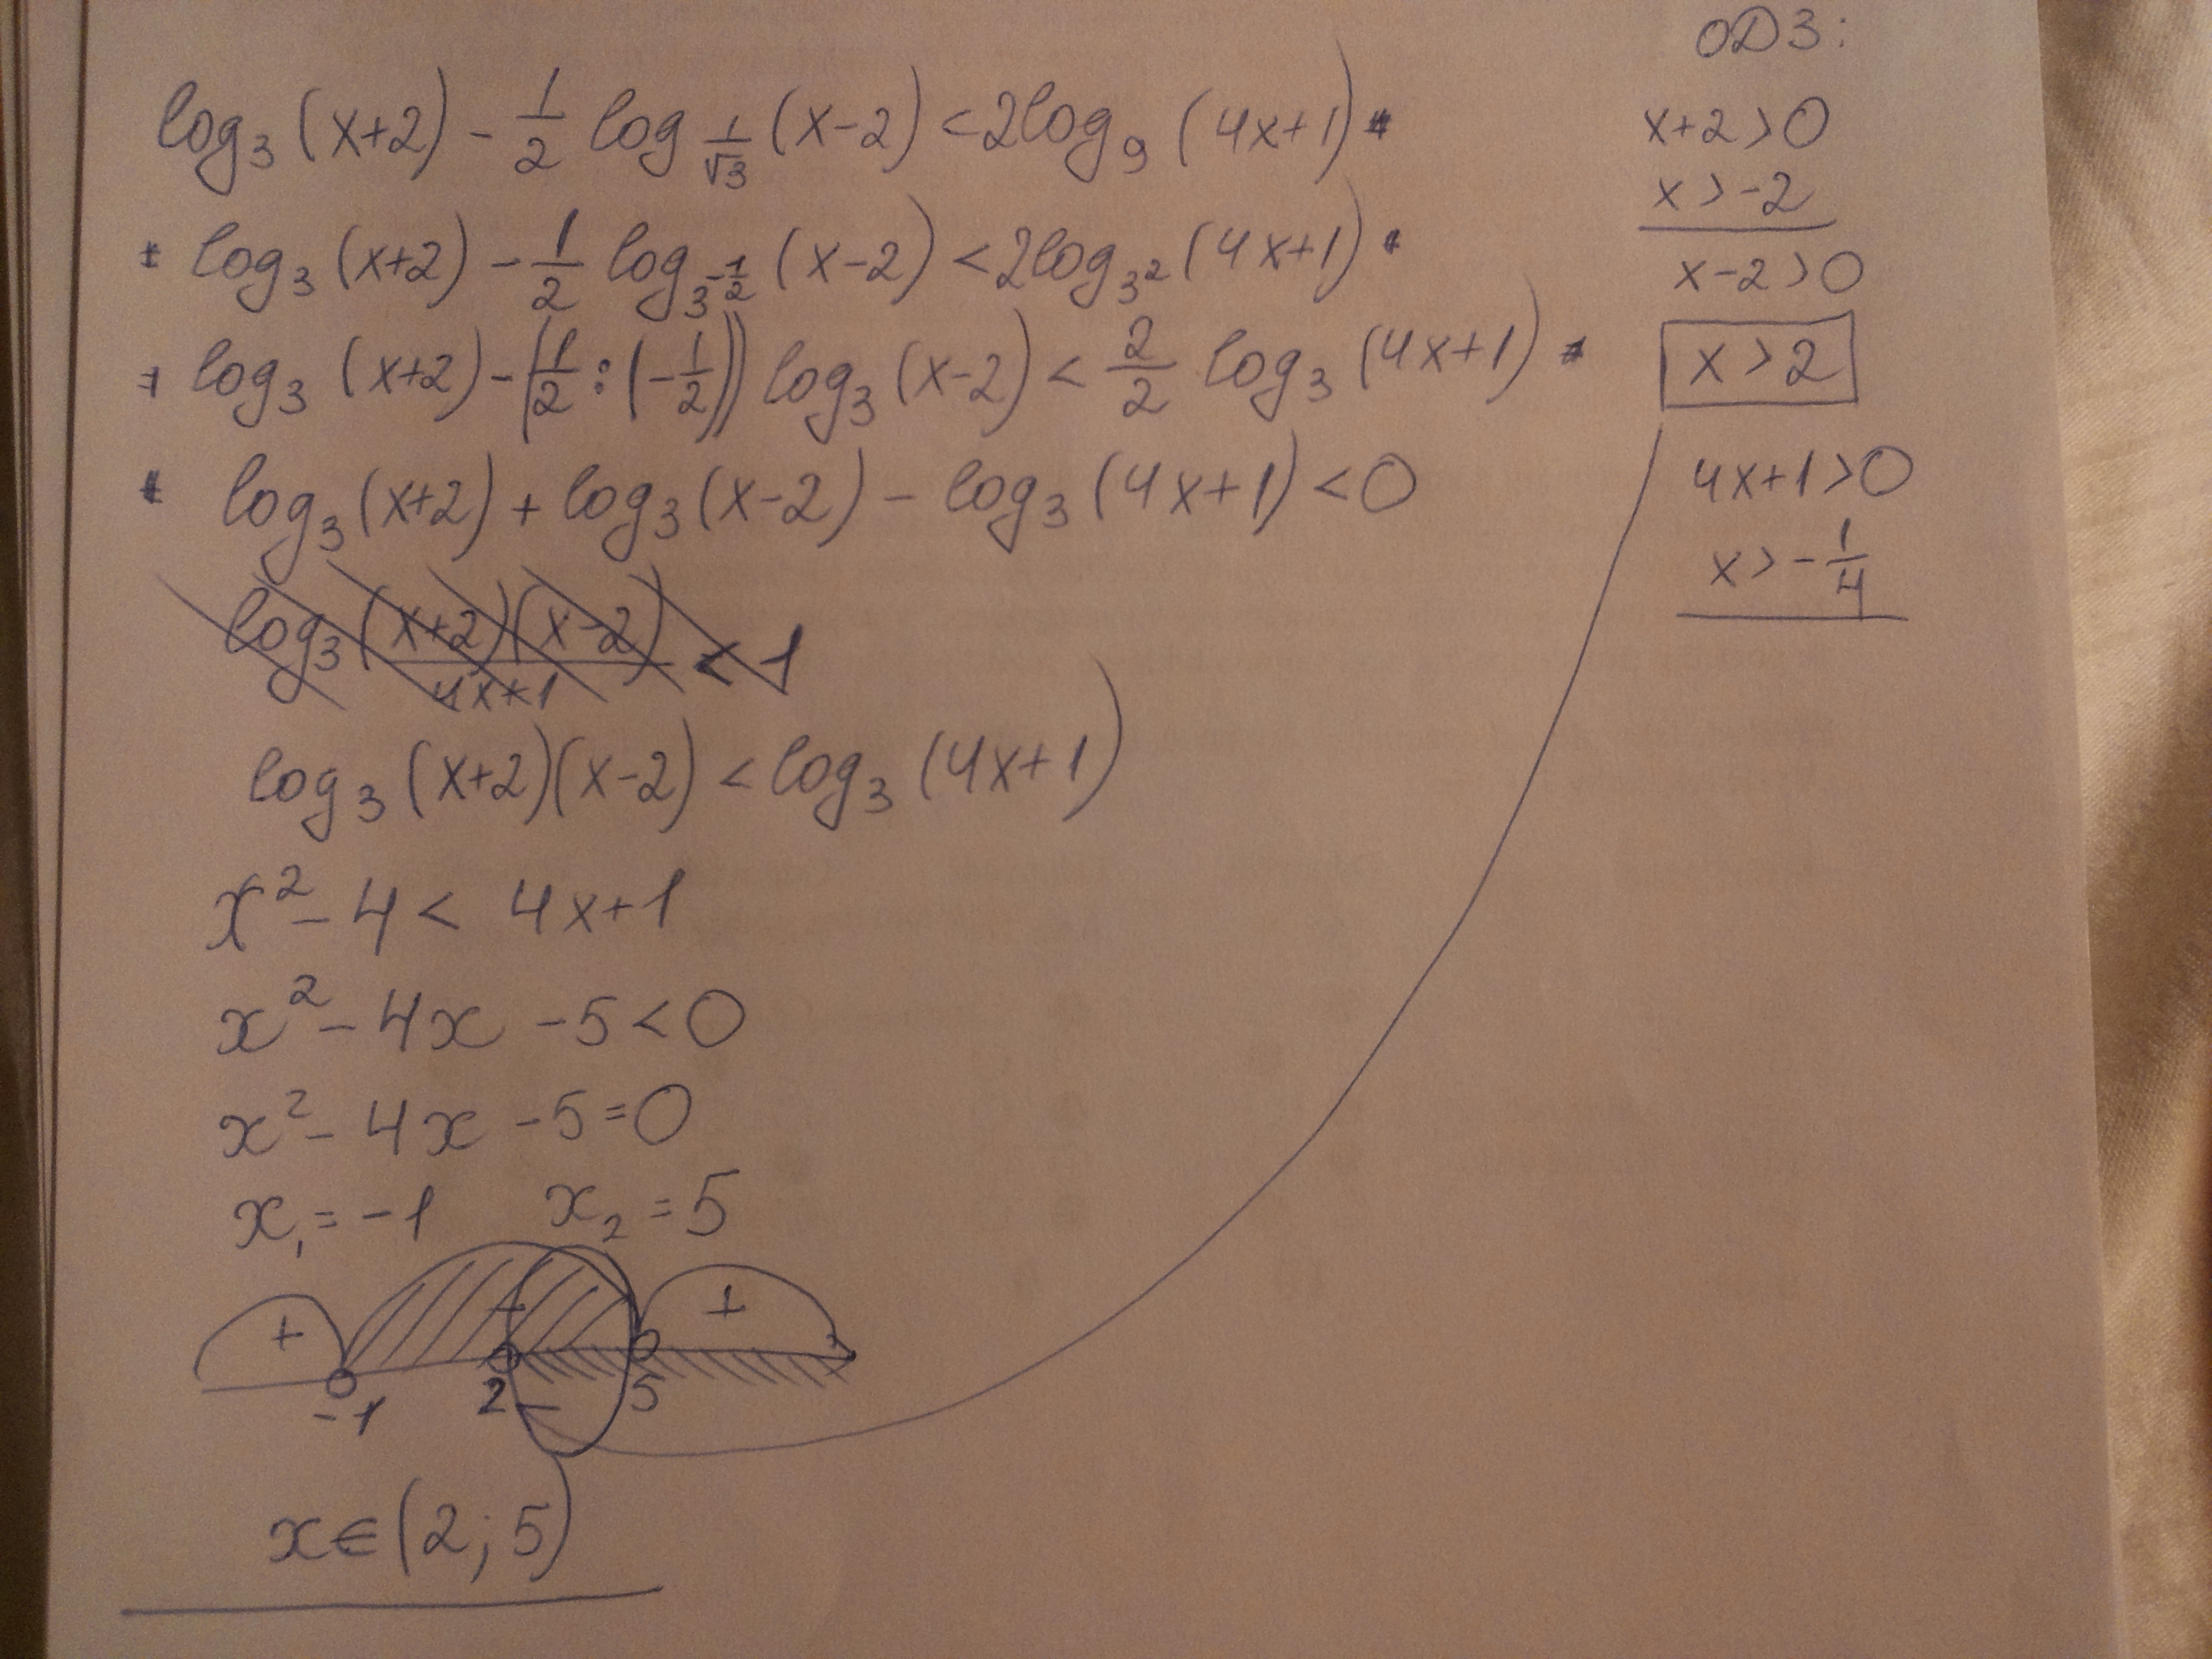 log₃(x+2) - 1/2 log_{1/√3}(x-2) < 2log₉(4x+1) =
= log₃(x+2) - 1/2 log_{3^{-1/2}}(x-2) < 2log_{3²}(4x+1) =
= log₃(x+2) - (1/2 : (-1/2)) log₃(x-2) < 2/2 log₃(4x+1) =
= log₃(x+2) + log₃(x-2) - log₃(4x+1) < 0
log₃ (x+2)(x-2)/4x+1 < 1
log₃(x+2)(x-2) < log₃(4x+1)
x² - 4 < 4x+1
x² - 4x - 5 < 0
x² - 4x - 5 = 0
x₁ = -1 x₂ = 5
+ - +
-1 2 5
x ∈ (2; 5)
ОДЗ:
x+2>0
x>-2
x-2>0
x>2
4x+1>0
x>-1/4